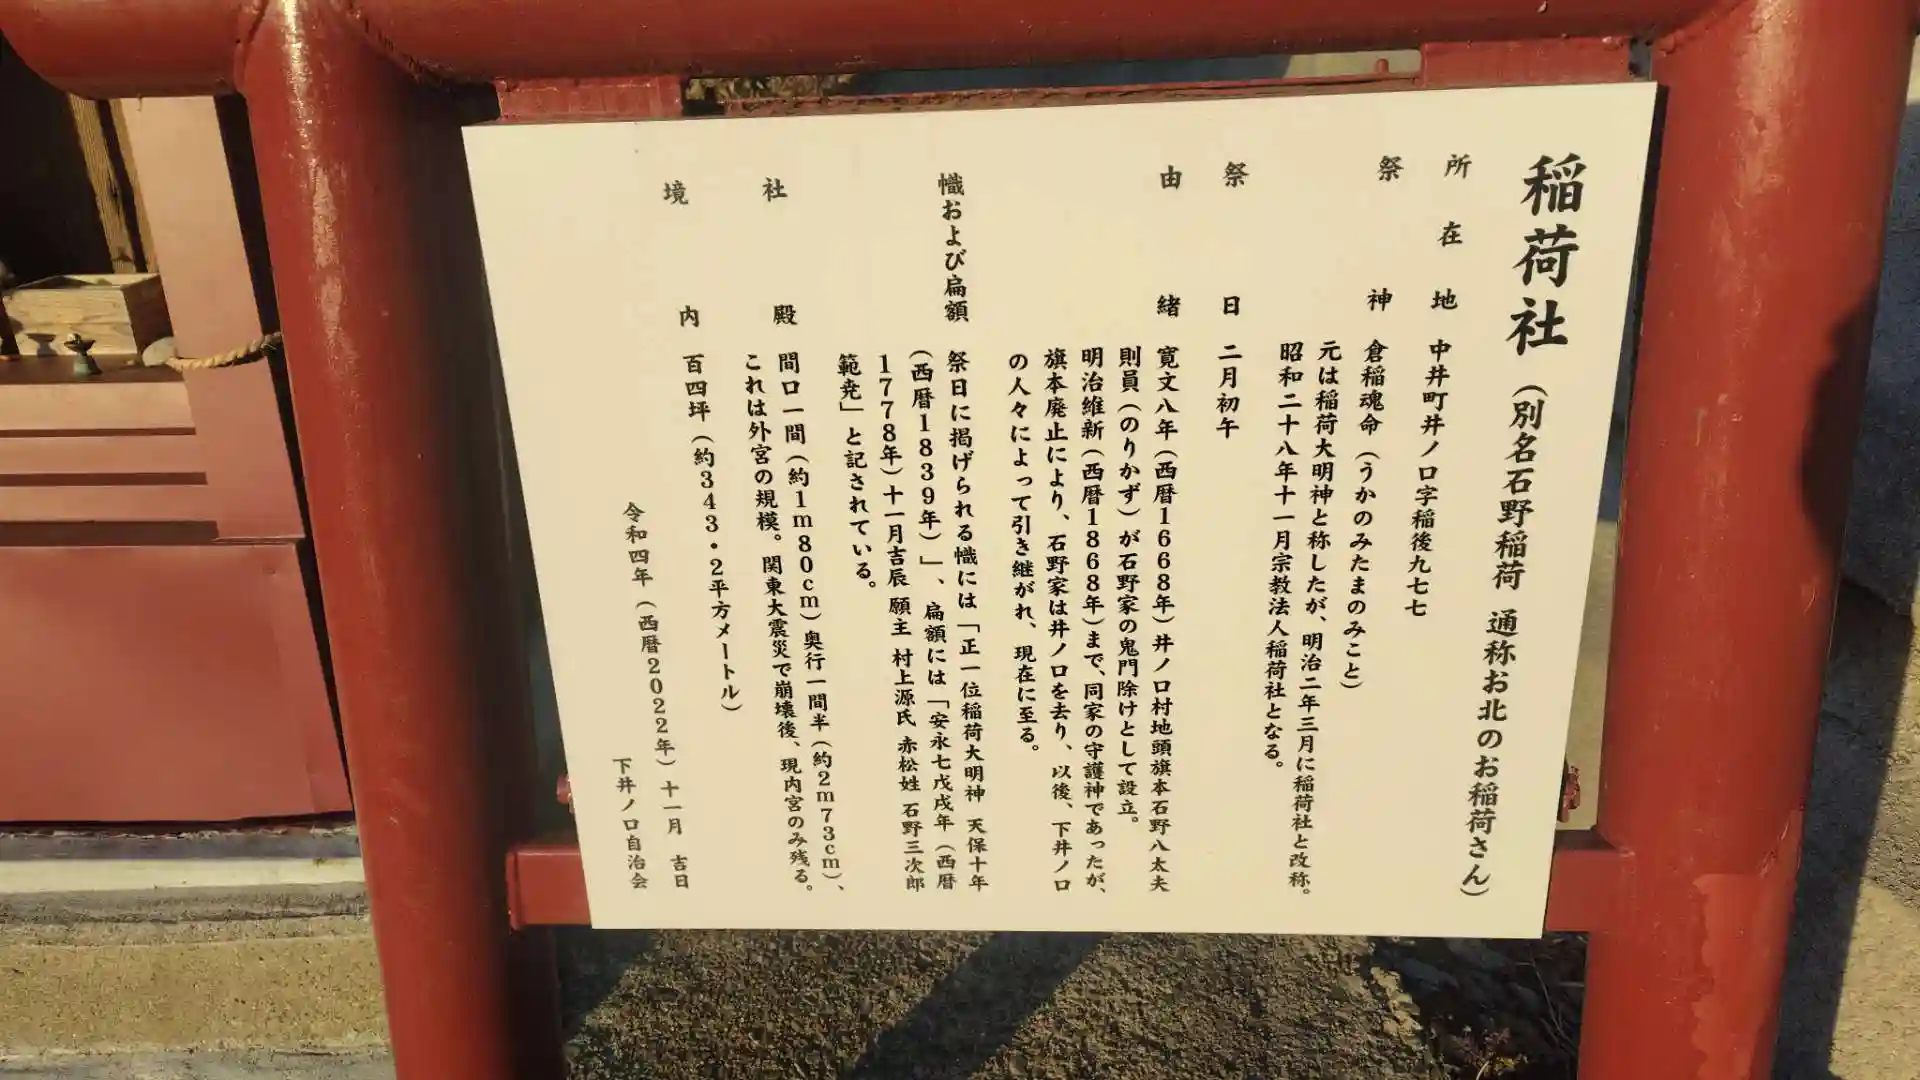 稲荷社（別名石野稲荷 通称お北のお稲荷さん）
所在地 中井町井ノ口字稲後九七七
祭神 倉稲魂命（うかのみたまのみこと）
元は稲荷大明神と称したが、明治二年三月に稲荷社と改称。
昭和二十八年十一月宗教法人稲荷社となる。
祭日 二月初午
由緒 寛文八年（西暦１６６８年）井ノ口村地頭旗本石野八太夫
則員（のりかず）が石野家の鬼門除けとして設立。
明治維新（西暦１８６８年）まで、同家の守護神であったが、
旗本廃止により、石野家は井ノ口を去り、以後、下井ノ口
の人々によって引き継がれ、現在に至る。
幟および扁額 祭日に掲げられる幟には「正一位稲荷大明神 天保十年
（西暦１８３９年）」、扁額には「安永七戊戌年（西暦
１７７８年）十一月吉辰 願主 村上源氏 赤松姓 石野三次郎
範尭」と記されている。
社殿 間口一間（約１ｍ８０ｃｍ）奥行一間半（約２ｍ７３ｃｍ）、
これは外宮の規模。関東大震災で崩壊後、現内宮のみ残る。
境内 百四坪（約３４３・２平方メートル）
令和四年（西暦２０２２年）十一月 吉日
下井ノ口自治会